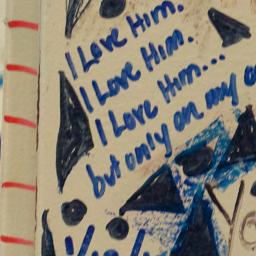 I Love Him.
I Love Him.
I Love Him...
but only on my